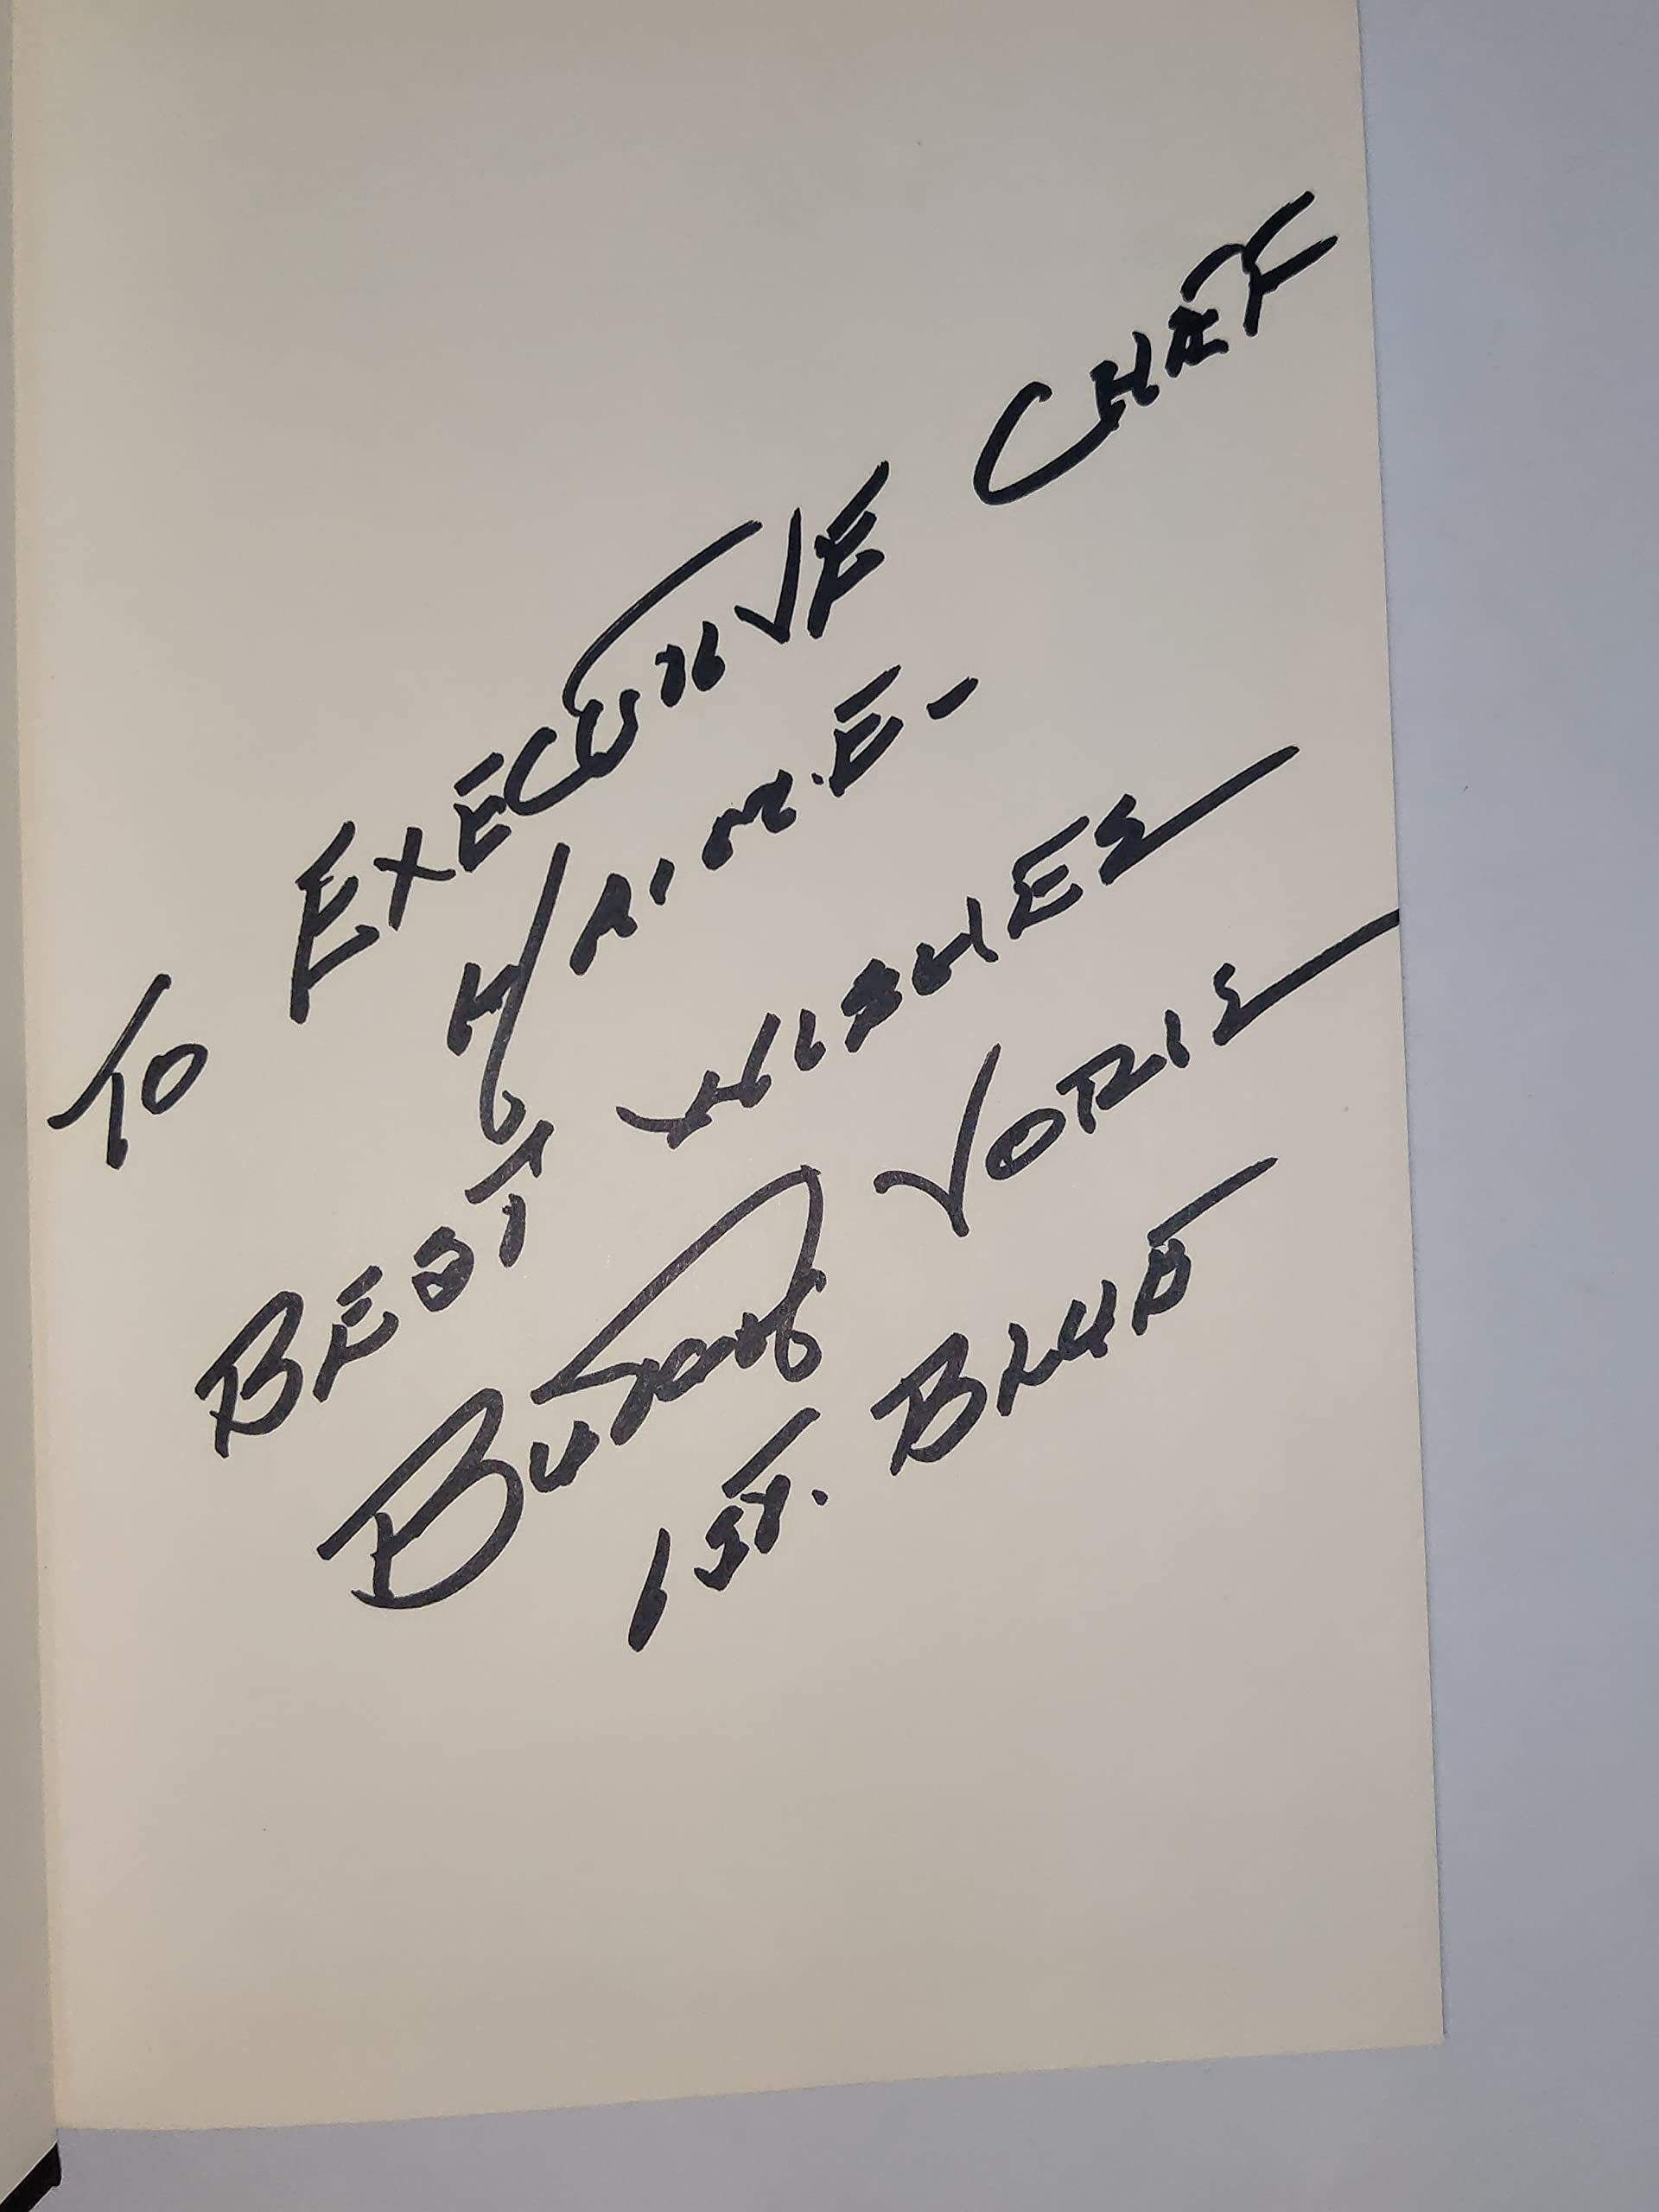 TO EXECUTIVE CHEF
JAIME -
BEST WISHES
BUTCH VORIS
1ST. BLUE